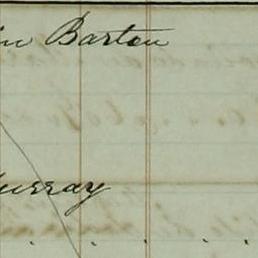 in Barton
urray